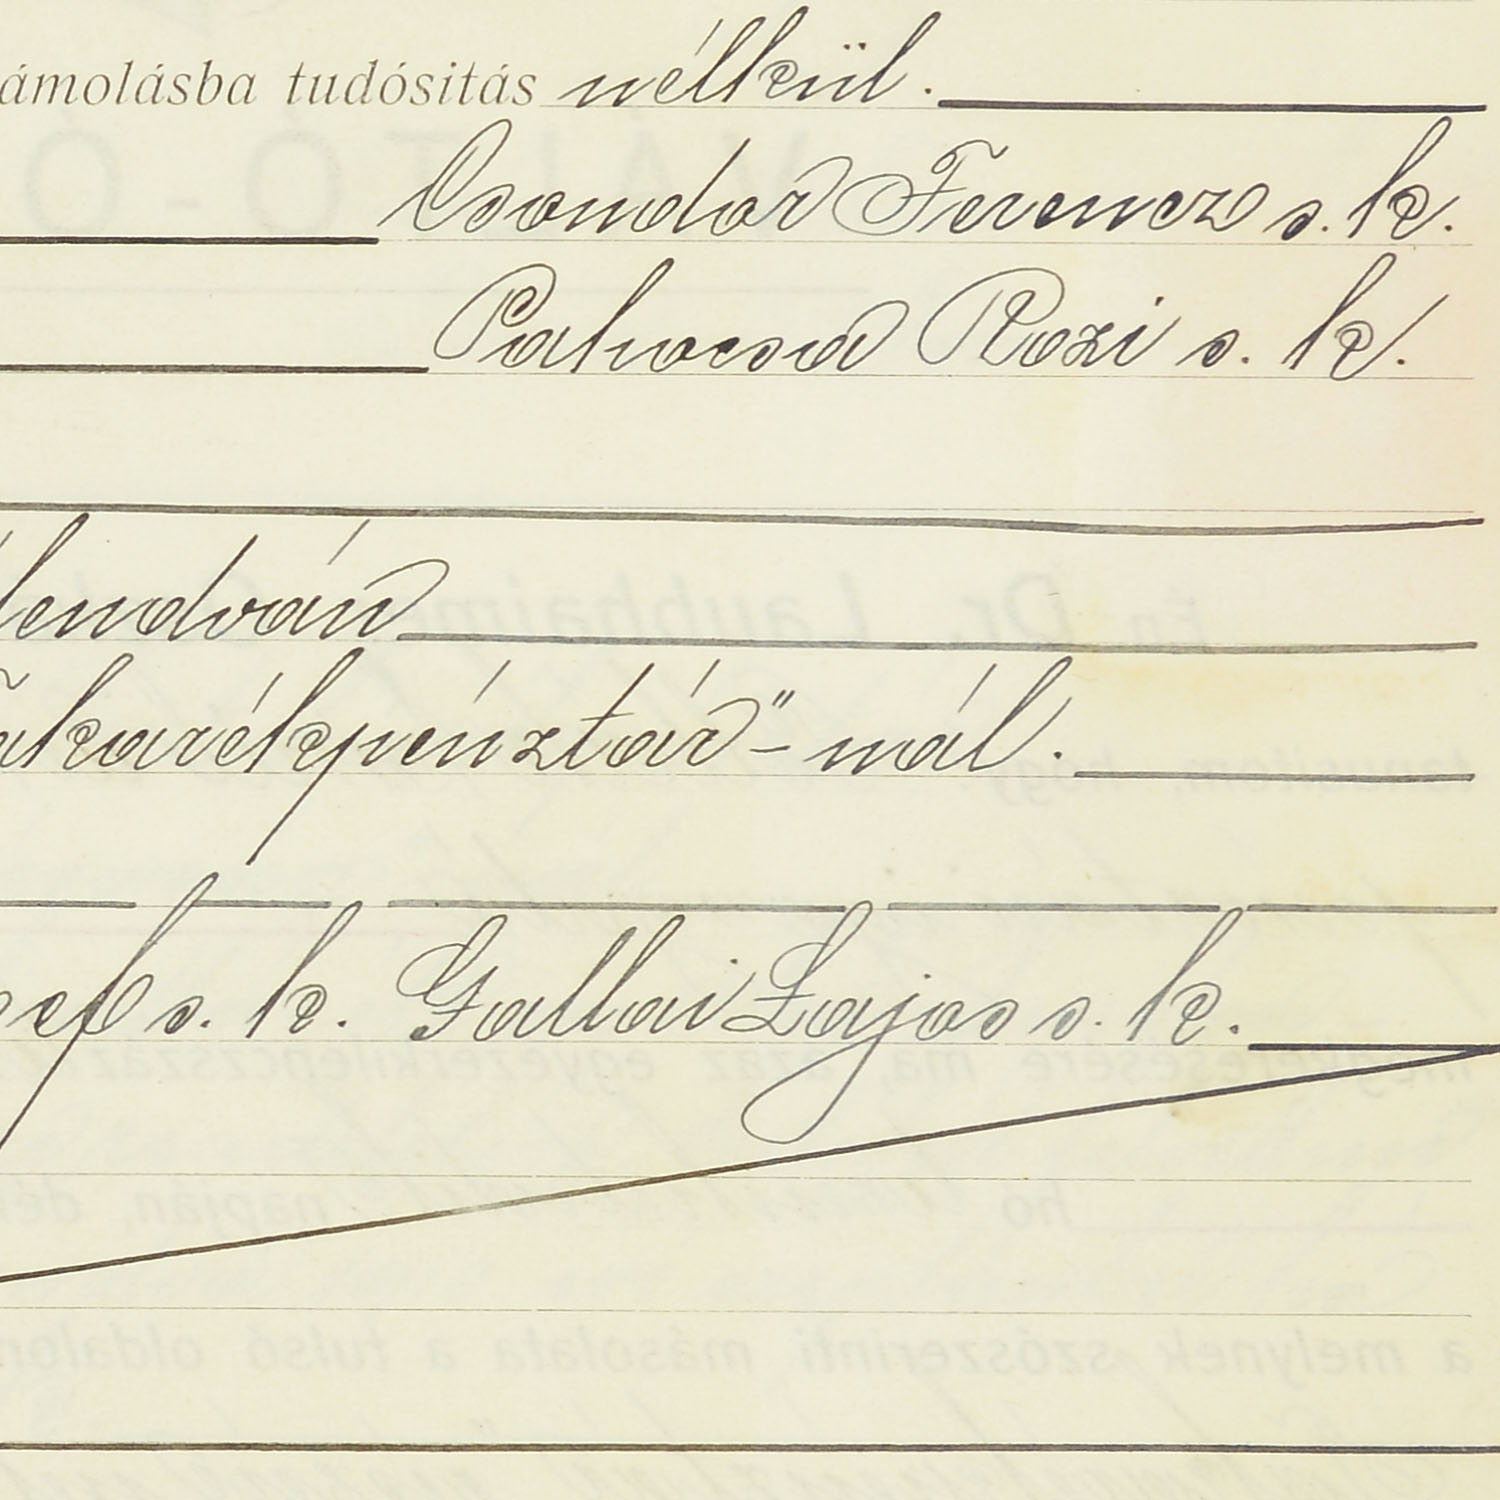 ámolásba tudósitás nélkül.
Csondor Ferencz s. k.
Pahocsa Rozi s. k.
lendván
akarékpénztár"-nál.
s. k. Gallai Lajos s. k.